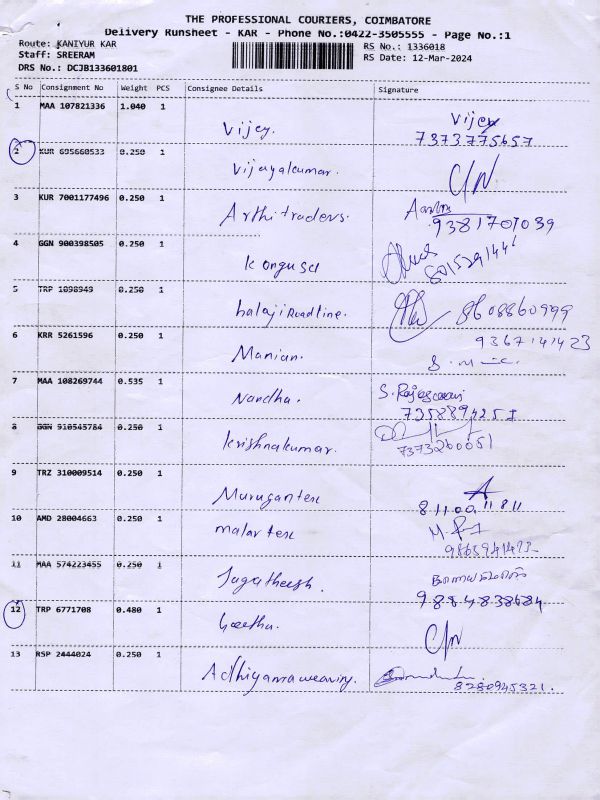 THE PROFESSIONAL COURIERS, COIMBATORE
Delivery Runsheet - KAR - Phone No.:0422-3505555 - Page No.:1
Route: KANIYUR KAR RS No.: 1336018
Staff: SREERAM RS Date: 12-Mar-2024
DRS No.: DCJB133601801
S No Consignment No Weight PCS Consignee Details Signature
1 MAA 107821336 1.040 1 Vijey. Vijey
7373775657
2 KUR 605660533 0.250 1 Vijayalkumar. C/N
3 KUR 7001177496 0.250 1 Arthitraders.
9381701039
4 GGN 900398505 0.250 1 Kongusa
5 TRP 1098949 0.250 1 balajiRoadline. 8608860999
6 KRR 5261596 0.250 1 Manian. 9367141423
7 MAA 108269744 0.535 1 Nandha. S. Rajeswari
8 GGN 910545784 0.250 1 Krishnakumar.
7373260051
9 TRZ 310009514 0.250 1 Murugantex
10 AMD 28004663 0.250 1 malartex
11 MAA 574223455 0.250 1 Jagatheesh.
9884838684
12 TRP 6771708 0.480 1 Geetha. C/N
13 RSP 2444024 0.250 1 Adhiyamaweaving.
8280945321.